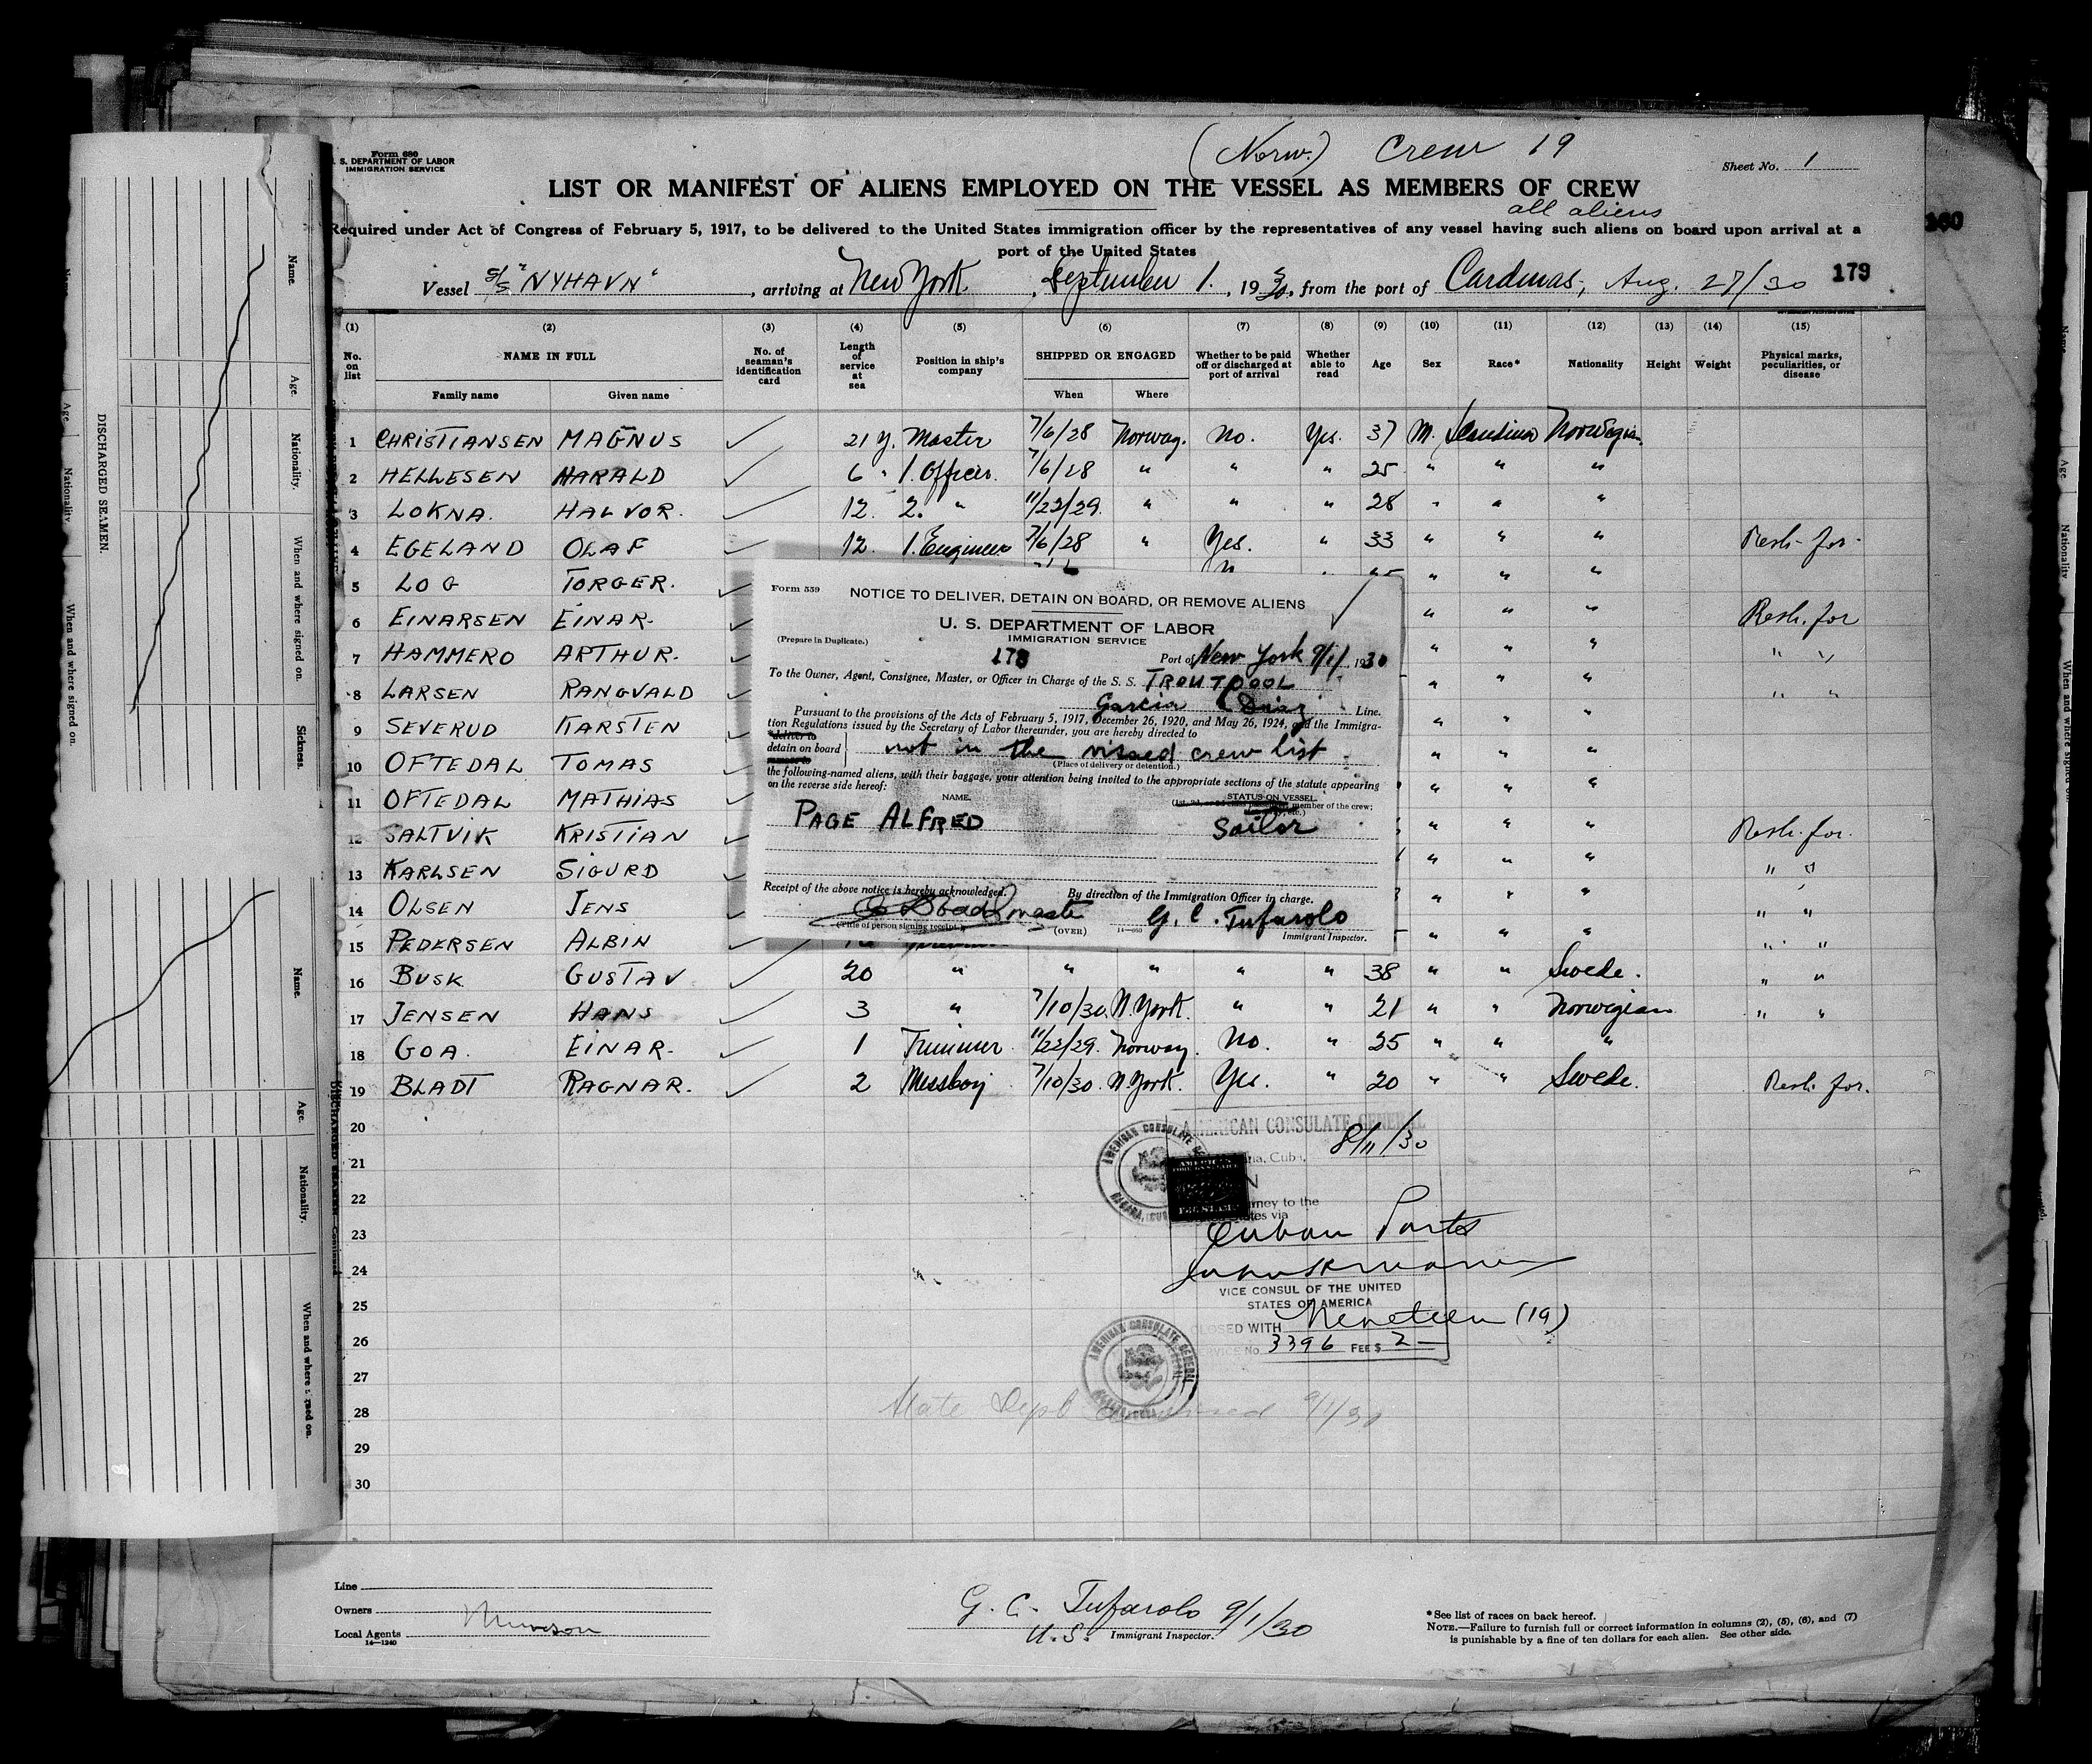 (Norw.) Crew 19
Form 680
U. S. DEPARTMENT OF LABOR
IMMIGRATION SERVICE
Sheet No. 1
LIST OR MANIFEST OF ALIENS EMPLOYED ON THE VESSEL AS MEMBERS OF CREW
all aliens
Required under Act of Congress of February 5, 1917, to be delivered to the United States immigration officer by the representatives of any vessel having such aliens on board upon arrival at a
port of the United States
Vessel S/S "NYHAVN", arriving at New York, September 1., 1930, from the port of Cardenas, Aug. 27/30 179
(1) (2) (3) (4) (5) (6) (7) (8) (9) (10) (11) (12) (13) (14) (15)
No. on list NAME IN FULL No. of seaman's identification card Length of service at sea Position in ship's company SHIPPED OR ENGAGED Whether to be paid off or discharged at port of arrival Whether able to read Age Sex Race* Nationality Height Weight Physical marks, peculiarities, or disease
Family name Given name When Where
1 CHRISTIANSEN MAGNUS 21 y. Master 7/6/28 Norway. No. Yes. 37 M. Scandinav Norwegian.
2 HELLESEN HARALD 6 " 1. Officer. 7/6/28 " " " 25 " " "
3 LOKNA. HALVOR. 12. 2. " 11/22/29. " " " 28 " " "
4 EGELAND OLAF 12. 1. Engineer 7/6/28 " Yes. " 33 " " " Resh. for.
5 LOG TORGER. " " "
6 EINARSEN EINAR. " " " Resh. for
7 HAMMERO ARTHUR. " " " " "
8 LARSEN RANGVALD " " " " "
9 SEVERUD KARSTEN " " "
10 OFTEDAL TOMAS " " "
11 OFTEDAL MATHIAS " " "
12 SALTVIK KRISTIAN " " " Resh. for.
13 KARLSEN SIGURD " " " " "
14 OLSEN JENS " " " " "
15 PEDERSEN ALBIN " " " " "
16 BUSK GUSTAV 20 " " " " " 38 " " Swede. " "
17 JENSEN HANS 3 " 7/10/30. N. York. " " 21 " " Norwegian " "
18 GOA. EINAR. 1 Trimmer 11/22/29. Norway. No. " 25 " " "
19 BLADT RAGNAR. 2 Messboy 7/10/30. N. York. Yes. " 20 " " Swede. Resh. for.
20
21
22
23
24
25
26
27
28
29
30
Form 559
NOTICE TO DELIVER, DETAIN ON BOARD, OR REMOVE ALIENS
U. S. DEPARTMENT OF LABOR
(Prepare in Duplicate.) IMMIGRATION SERVICE
178 Port of New York 9/1/, 1930
To the Owner, Agent, Consignee, Master, or Officer in Charge of the S. S. TROUTPOOL
Garcia & Diaz Line.
Pursuant to the provisions of the Acts of February 5, 1917, December 26, 1920, and May 26, 1924, and the Immigra-
tion Regulations issued by the Secretary of Labor thereunder, you are hereby directed to
deliver to
detain on board not in the visaed crew list
remove to
(Place of delivery or detention.)
the following-named aliens, with their baggage, your attention being invited to the appropriate sections of the statute appearing
on the reverse side hereof:
NAME. STATUS ON VESSEL.
member of the crew;
PAGE ALFRED Sailor
Receipt of the above notice is hereby acknowledged. By direction of the Immigration Officer in charge.
master G. C. Tufarolo
(Title of person signing receipt.) (OVER) 14—660 Immigrant Inspector.
AMERICAN CONSULATE GENERAL
8/11/30
Cuba.
Cuban Ports
VICE CONSUL OF THE UNITED
STATES OF AMERICA
CLOSED WITH Nineteen (19)
SERVICE No. 3396 FEE $ 2—
AMERICAN CONSULATE GENERAL
State Dept advised 9/1/30
Line
Owners
Local Agents Munson
14—1240
G. C. Tufarolo 9/1/30
U.S. Immigrant Inspector.
*See list of races on back hereof.
NOTE.—Failure to furnish full or correct information in columns (2), (5), (6), and (7)
is punishable by a fine of ten dollars for each alien. See other side.
DISCHARGED SEAMEN.
Name. Age. Nationality. When and where signed on. Sickness.
Name. Age. Nationality. When and where signed on.